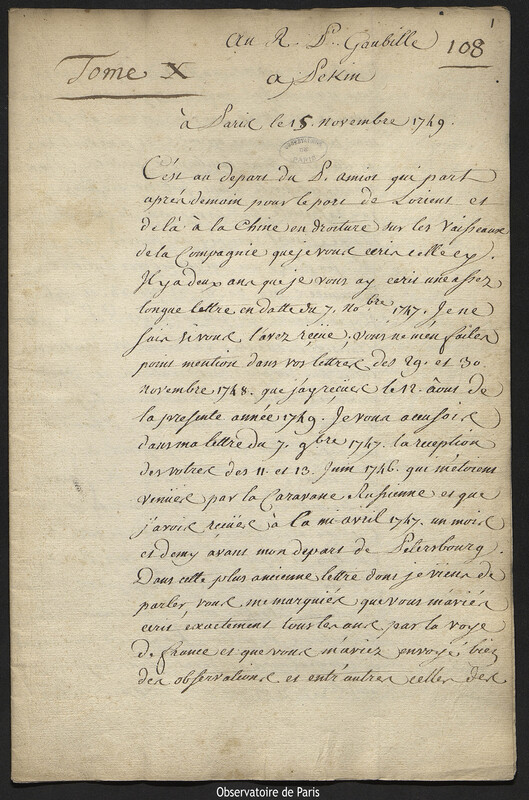 1
Au R. P. Gaubille
108
Tome X
a Pekin
à Paris le 15 novembre 1749.
OBSERVATOIRE DE PARIS
C'est au depart du P. amiot qui part
après demain pour le port de Lorient et
de là à la Chine en droiture sur les Vaisseaux
de la Compagnie que je vous ecris celle cy.
Il y a deux ans que je vous ay ecrit une assez
longue lettre en datte du 7. No.bre 1747. Je ne
sais si vous l'avez reçüe. vous ne m'en faites
point mention dans vos lettres des 29. et 30.
novembre 1748. que j'ay reçües le 12. âout de
la presente année 1749. Je vous accusois
dans ma lettre du 7. 9.bre 1747. la reception
des votres des 11. et 13. Juin 1746. qui m'etoient
venües par la Caravane Russienne et que
j'avois reçües à la mi-avril 1747. un mois
et demy avant mon depart de Petersbourg.
Dans cette plus ancienne lettre dont je viens de
parler, vous me marquiés que vous m'aviés
ecrit exactement tous les ans par la voye
de france et que vous m'aviez envoyé bien
des observations et entr'autres celles des
Observatoire de Paris